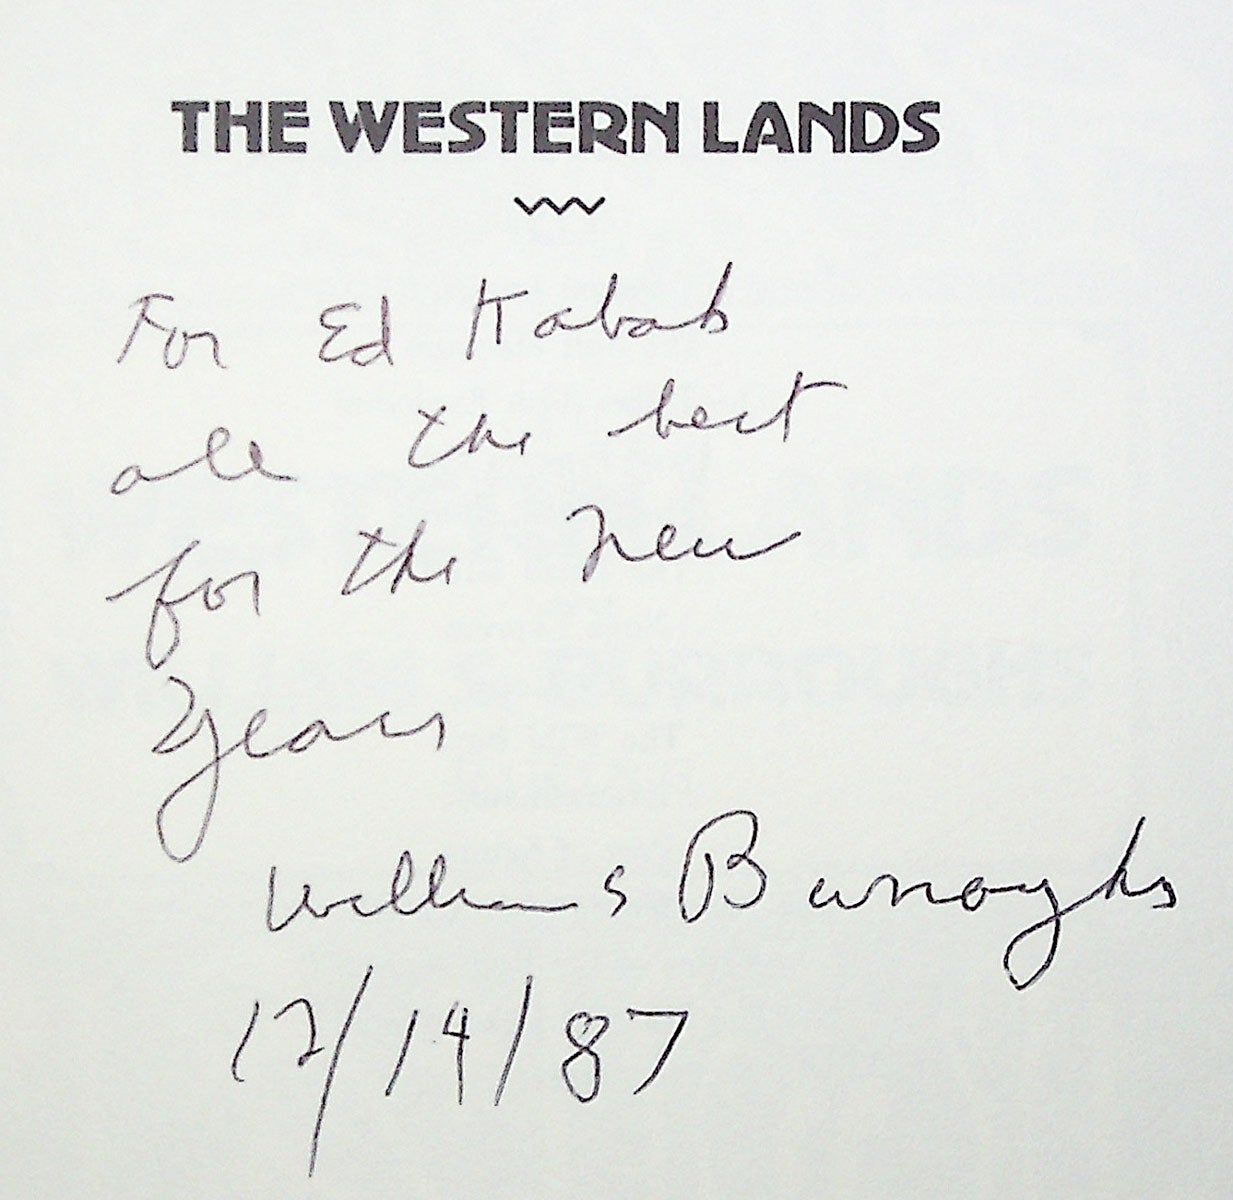 THE WESTERN LANDS
For Ed Kabak
all the best
for the New
Years
William S Burroughs
12/14/87